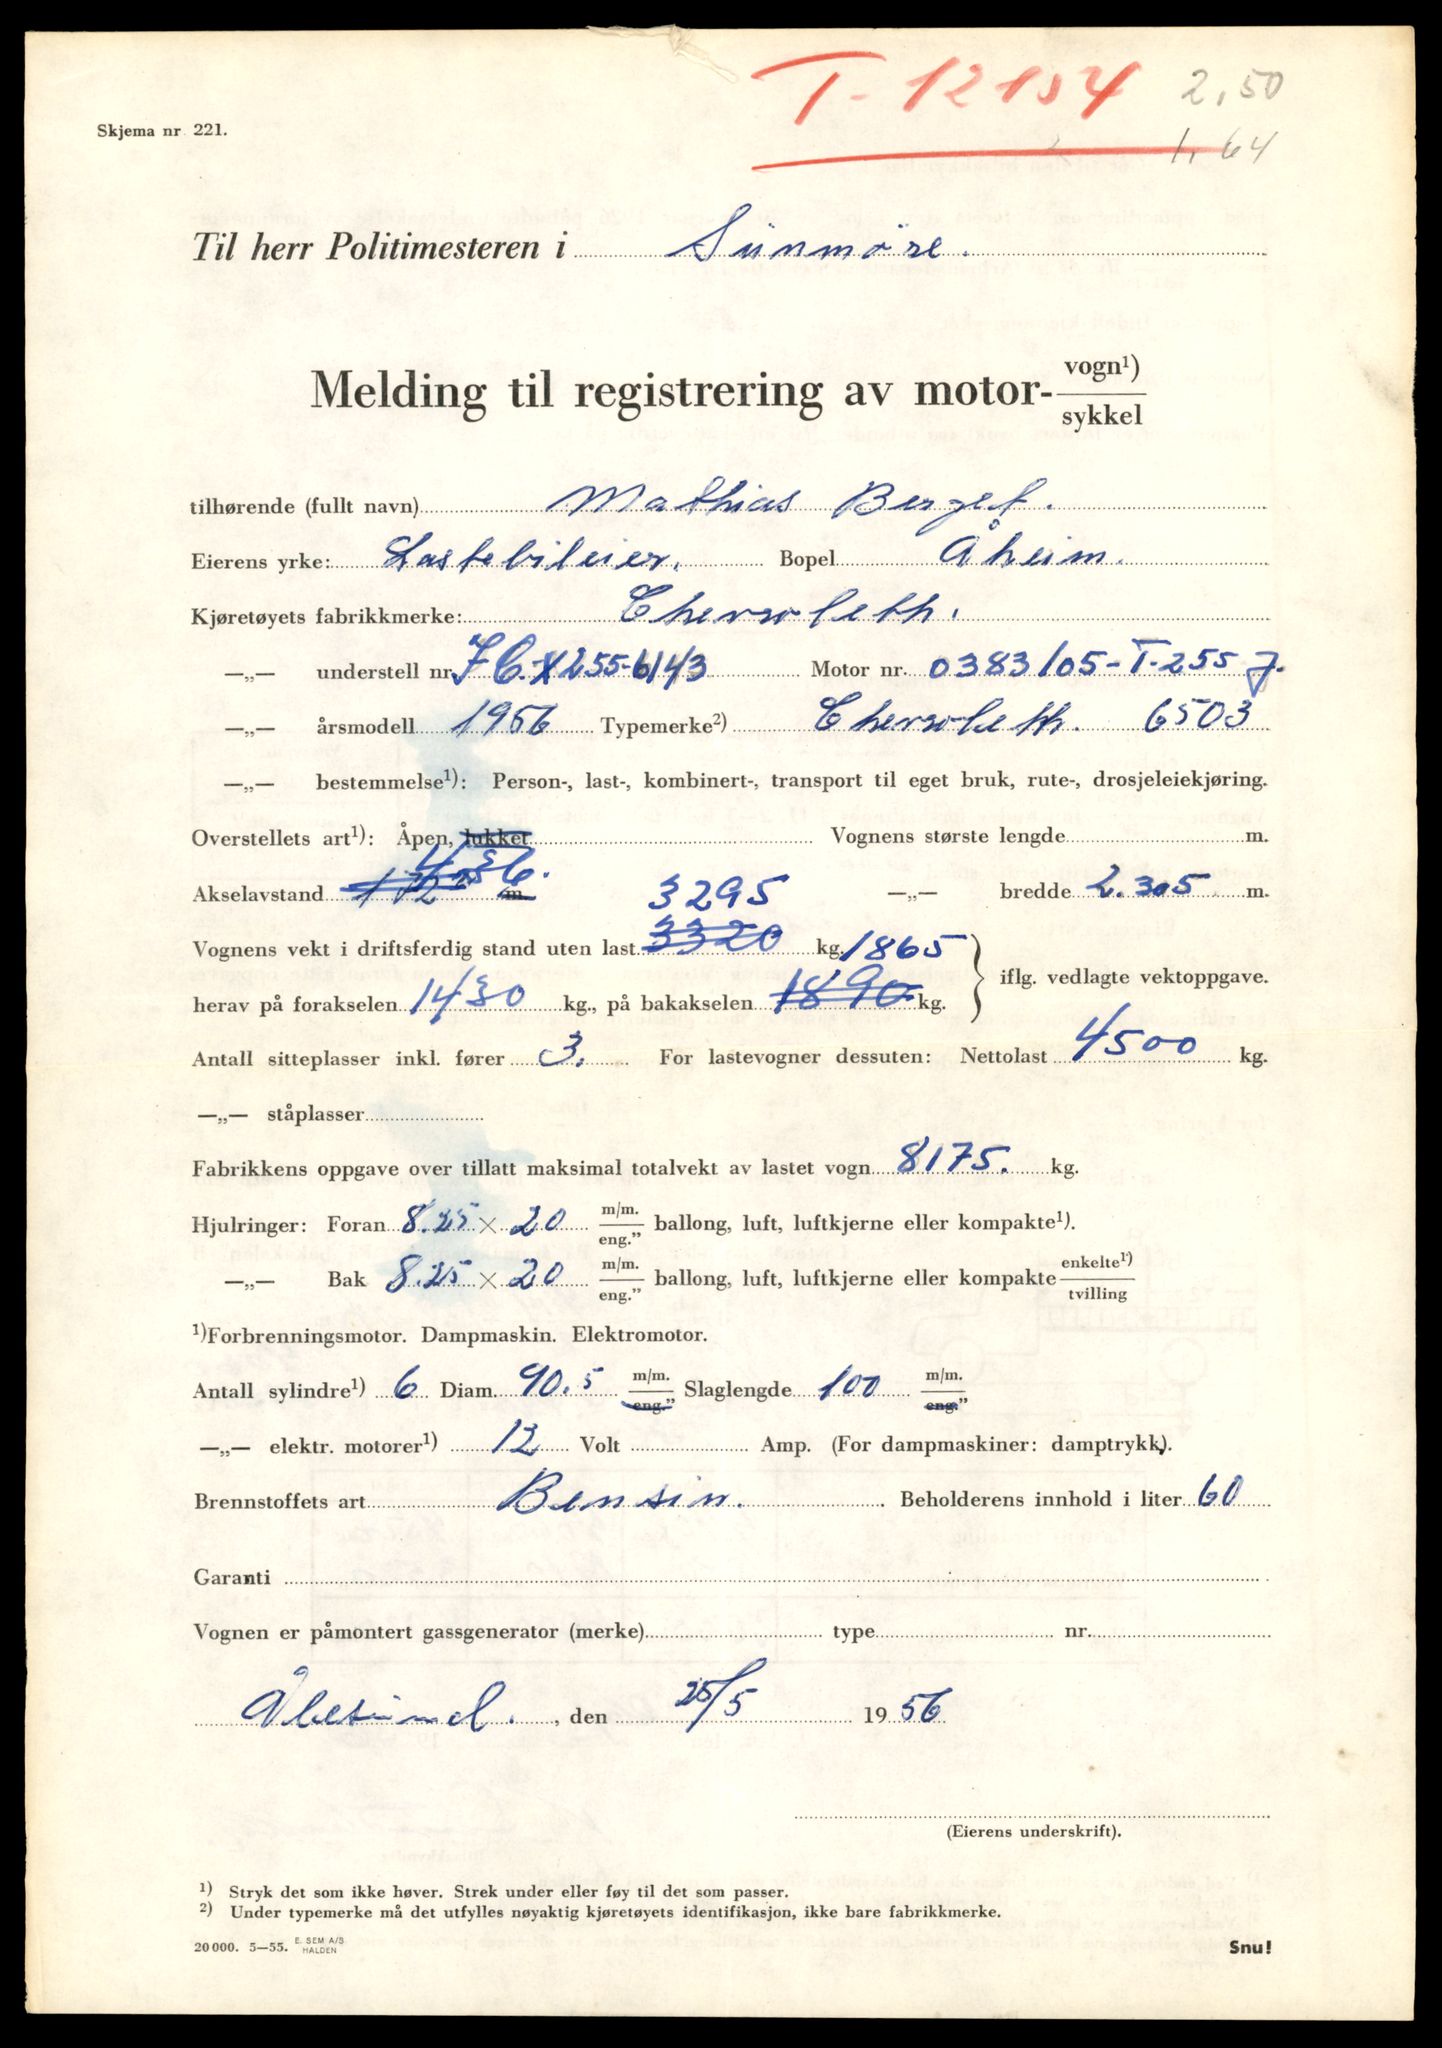 T-12154 2,50
1,64
Skjema nr 221.
Til herr Politimesteren i Sünmøre.
Melding til registrering av motor- vogn¹) / sykkel
tilhørende (fullt navn) Mathias Berget.
Eierens yrke: Lastebileier. Bopel Åheim.
Kjøretøyets fabrikkmerke: Chevroleth.
—„— understell nr. 7C.X255-6143 Motor nr. 0383105-T-255 J.
—„— årsmodell 1956 Typemerke²) Chevroleth. 6503
—„— bestemmelse¹): Person-, last-, kombinert-, transport til eget bruk, rute-, drosjeleiekjøring.
Overstellets art¹): Åpen, lukket Vognens største lengde m.
Akselavstand m —„— bredde 2.305 m.
3295
Vognens vekt i driftsferdig stand uten last 3320 kg. 1865
herav på forakselen 1430 kg., på bakakselen 1890 kg. iflg. vedlagte vektoppgave.
Antall sitteplasser inkl. fører 3. For lastevogner dessuten: Nettolast 4500 kg.
—„— ståplasser
Fabrikkens oppgave over tillatt maksimal totalvekt av lastet vogn 8175. kg.
Hjulringer: Foran 8.25 × 20 m/m. / eng.” ballong, luft, luftkjerne eller kompakte¹).
—„— Bak 8.25 × 20 m/m. / eng.” ballong, luft, luftkjerne eller kompakte enkelte¹) / tvilling
¹)Forbrenningsmotor. Dampmaskin. Elektromotor.
Antall sylindre¹) 6 Diam. 90.5 m/m. / eng.” Slaglengde 100 m/m. / eng.”
—„— elektr. motorer¹) 12 Volt Amp. (For dampmaskiner: damptrykk).
Brennstoffets art Bensin. Beholderens innhold i liter 60
Garanti
Vognen er påmontert gassgenerator (merke) type nr.
, den 25/5 1956
(Eierens underskrift).
¹) Stryk det som ikke høver. Strek under eller føy til det som passer.
²) Under typemerke må det utfylles nøyaktig kjøretøyets identifikasjon, ikke bare fabrikkmerke.
20 000. 5—55. E. SEM A/S HALDEN Snu!